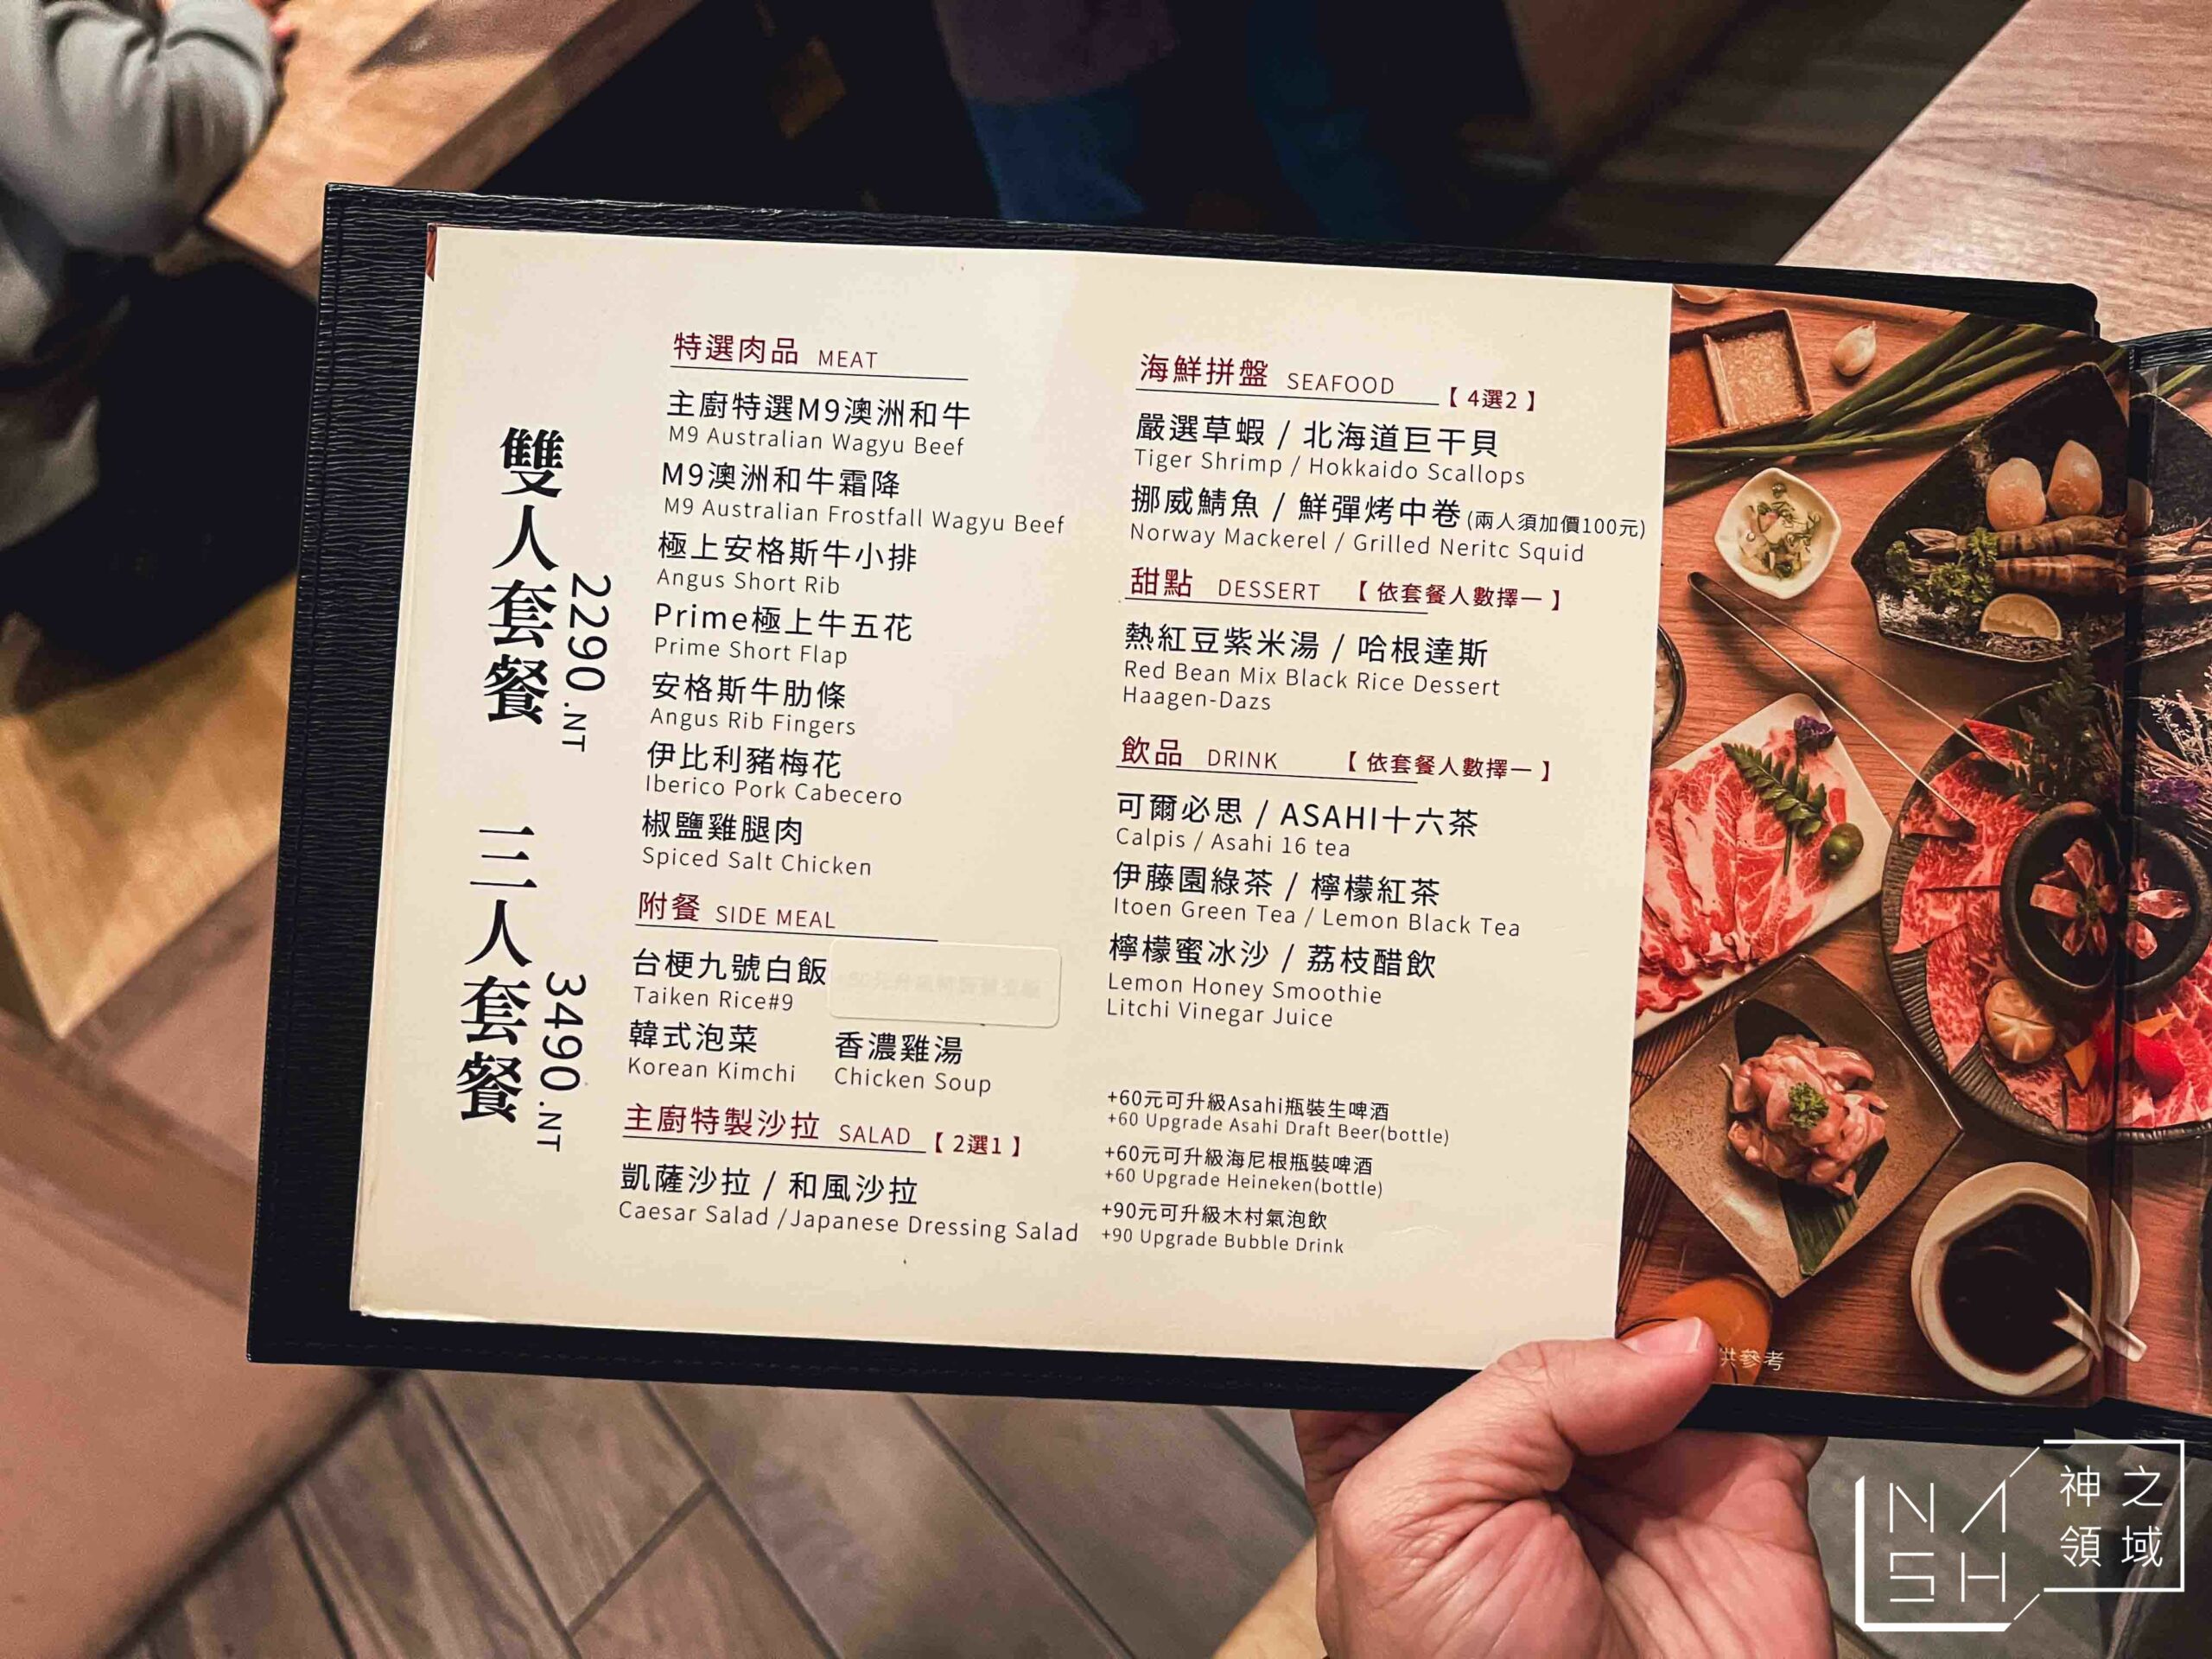 雙人套餐
2290.NT
三人套餐
3490.NT
特選肉品 MEAT
主廚特選M9澳洲和牛
M9 Australian Wagyu Beef
M9澳洲和牛霜降
M9 Australian Frostfall Wagyu Beef
極上安格斯牛小排
Angus Short Rib
Prime極上牛五花
Prime Short Flap
安格斯牛肋條
Angus Rib Fingers
伊比利豬梅花
Iberico Pork Cabecero
椒鹽雞腿肉
Spiced Salt Chicken
附餐 SIDE MEAL
台梗九號白飯
Taiken Rice#9
韓式泡菜 香濃雞湯
Korean Kimchi Chicken Soup
主廚特製沙拉 SALAD 【2選1】
凱薩沙拉 / 和風沙拉
Caesar Salad /Japanese Dressing Salad
海鮮拼盤 SEAFOOD 【4選2】
嚴選草蝦 / 北海道巨干貝
Tiger Shrimp / Hokkaido Scallops
挪威鯖魚 / 鮮彈烤中卷 (兩人須加價100元)
Norway Mackerel / Grilled Neritc Squid
甜點 DESSERT 【依套餐人數擇一】
熱紅豆紫米湯 / 哈根達斯
Red Bean Mix Black Rice Dessert
Haagen-Dazs
飲品 DRINK 【依套餐人數擇一】
可爾必思 / ASAHI十六茶
Calpis / Asahi 16 tea
伊藤園綠茶 / 檸檬紅茶
Itoen Green Tea / Lemon Black Tea
檸檬蜜冰沙 / 荔枝醋飲
Lemon Honey Smoothie
Litchi Vinegar Juice
+60元可升級Asahi瓶裝生啤酒
+60 Upgrade Asahi Draft Beer(bottle)
+60元可升級海尼根瓶裝啤酒
+60 Upgrade Heineken(bottle)
+90元可升級木村氣泡飲
+90 Upgrade Bubble Drink
供參考
NASH
神之領域